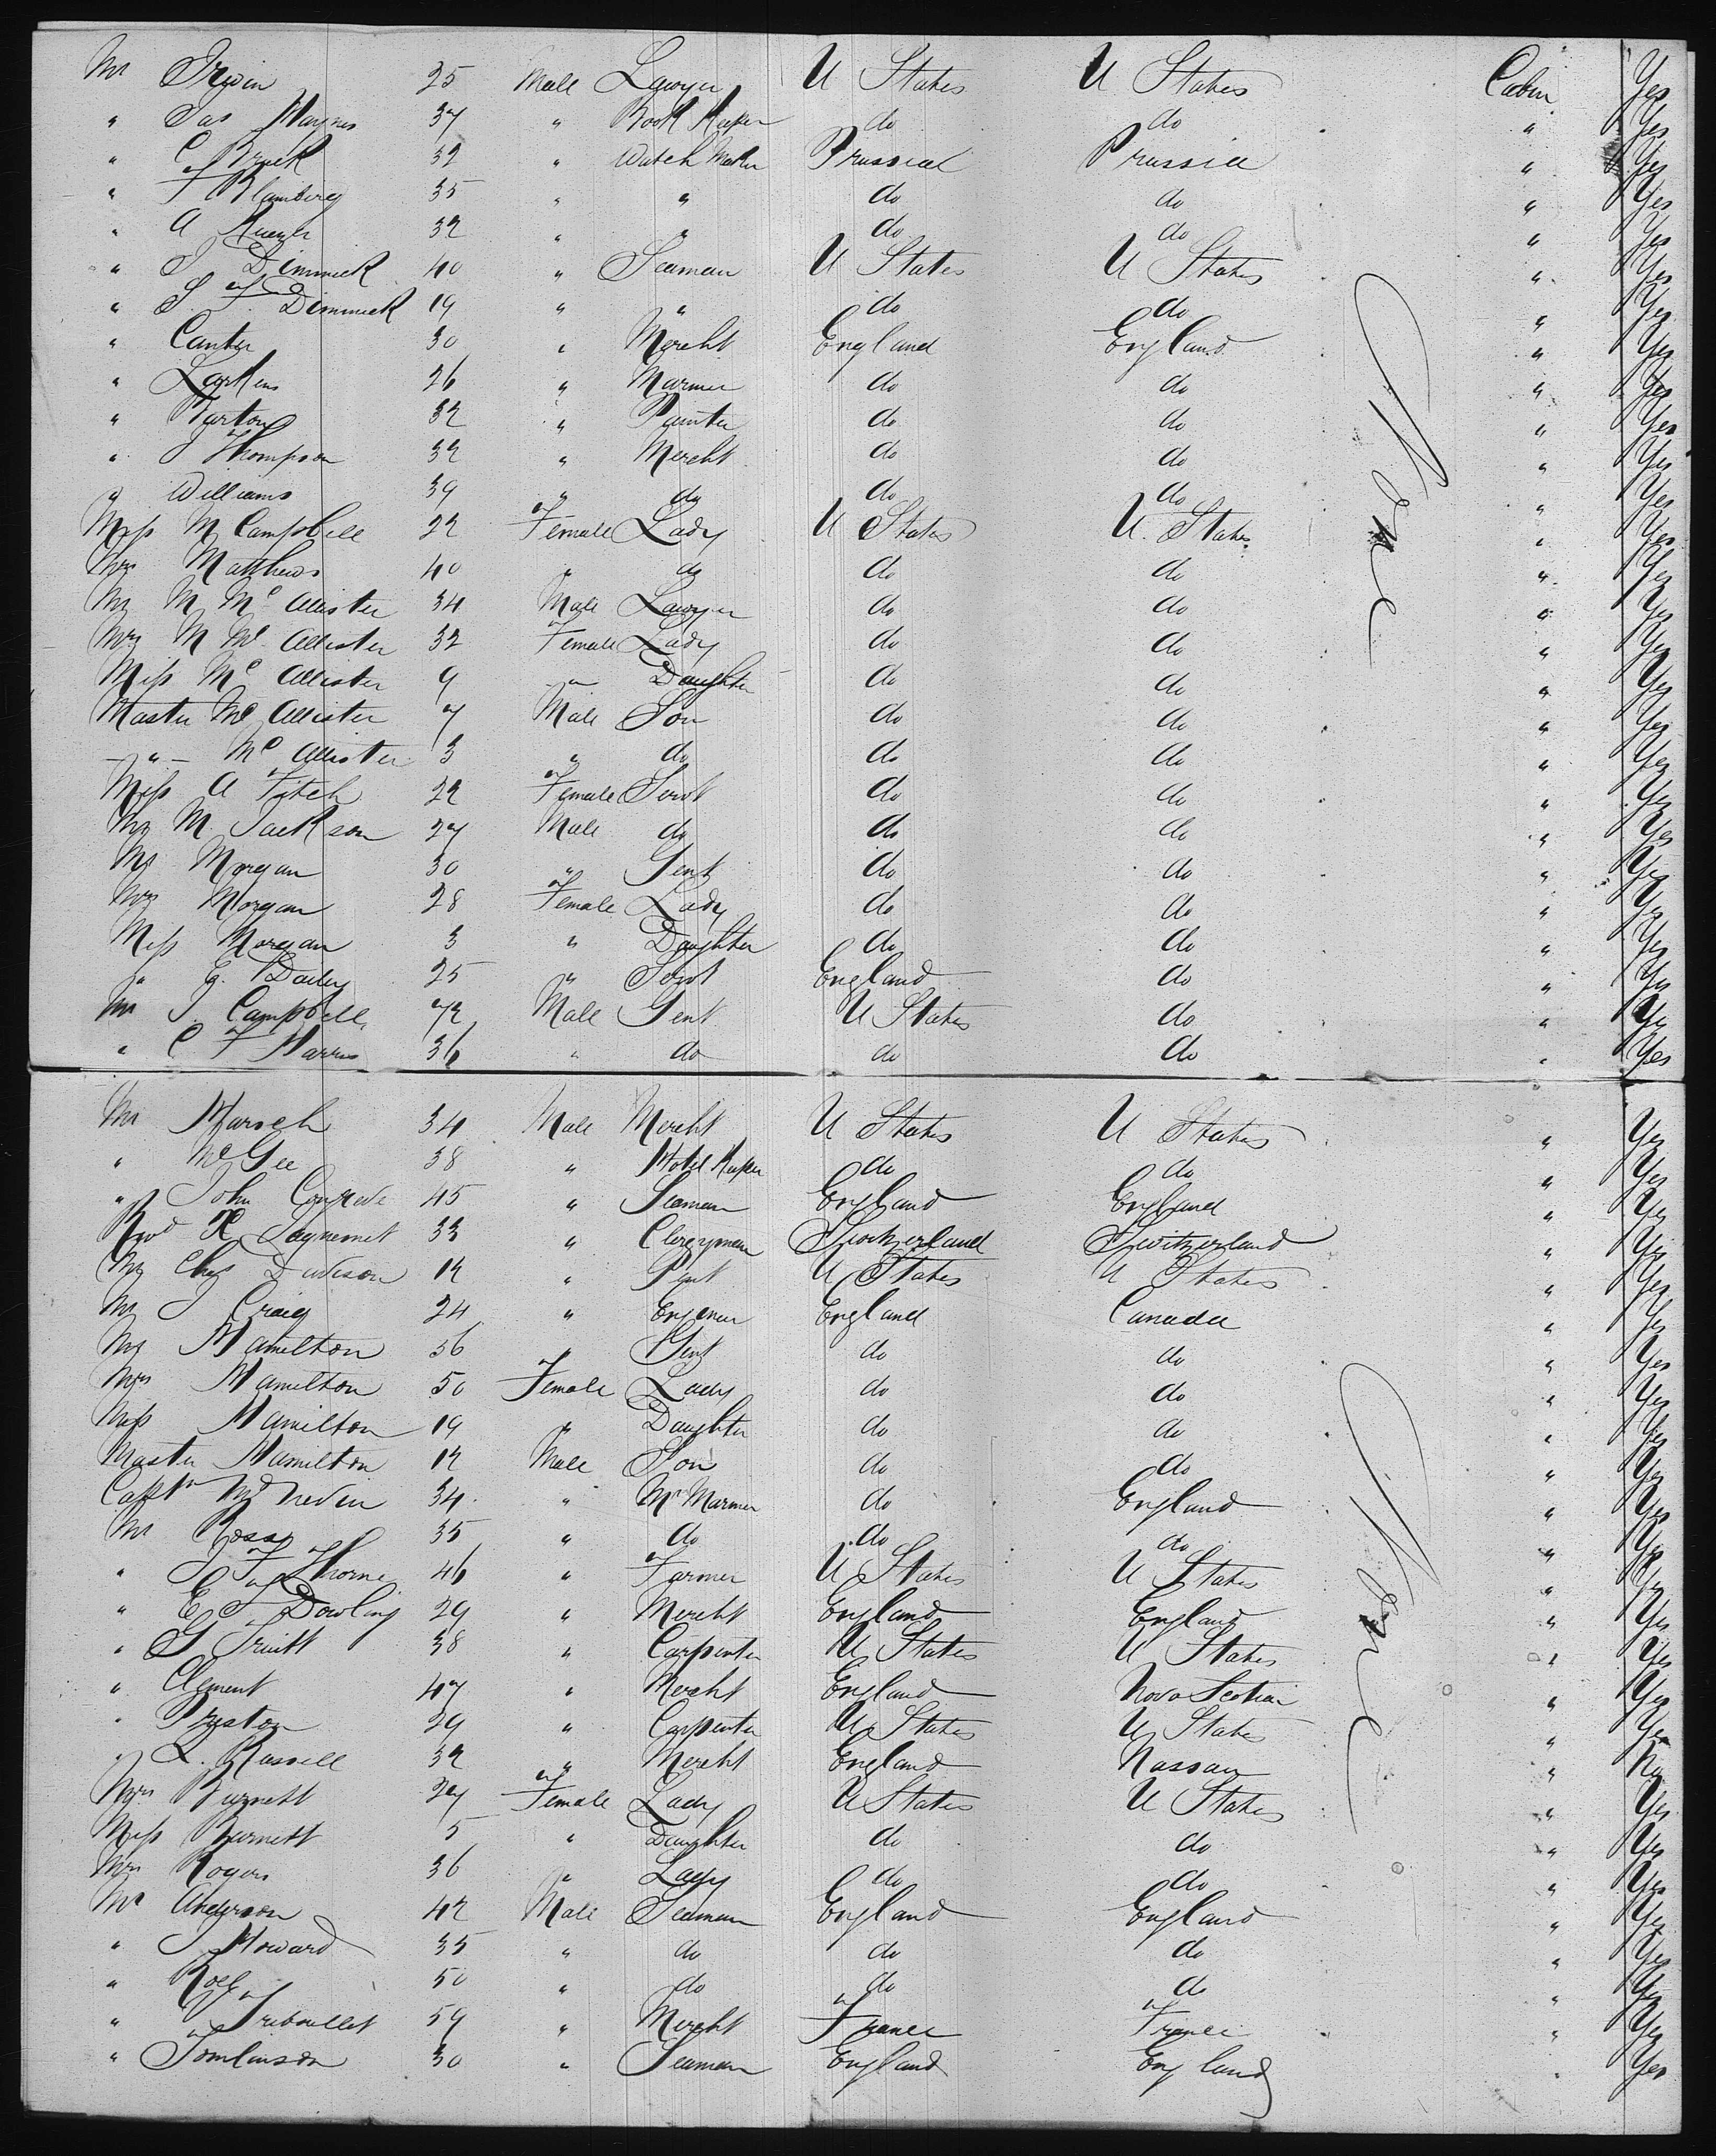 Mr Irwin 25 Male Lawyer U States U States Cabin Yes
" Jas Haynes 37 " Book Keeper do do " Yes
" C Bruck 32 " Watch Maker Prussia Prussia " Yes
" F Blumberg 35 " " do do " Yes
" A 32 " " do do " Yes
" J Dimmick 40 " Seaman U States U States " Yes
" S F Dimmick 19 " " do do " Yes
" Canter 30 " Mercht England England " Yes
" Larkins 26 " Mariner do do " Yes
" Barton 32 " Painter do do " Yes
" J Thompson 32 " Mercht do do " Yes
" Williams 39 " do do do " Yes
Miss M Campbell 22 Female Lady U States U. States " Yes
Mrs Matthews 40 " do do do " Yes
Mr M Mc Allister 34 Male Lawyer do do " Yes
Mrs M Mc Allister 32 Female Lady do do " Yes
Miss Mc Allister 9 " Daughter do do " Yes
Master Mc Allister 7 Male Son do do " Yes
" Mc Allister 3 " do do do " Yes
Miss A Fitch 22 Female Servt do do " Yes
Mr M Jackson 27 Male do do do " Yes
Mr Morgan 30 " Gent do do " Yes
Mrs Morgan 28 Female Lady do do " Yes
Miss Morgan 3 " Daughter do do " Yes
" E. Dailey 25 " Servt England do " Yes
Mr J. Campbell 72 Male Gent U States do " Yes
" C F Harris 36 " do do do " Yes
None
Mr Marsch 34 Male Mercht U States U States " Yes
" McGee 38 " Hotel Keeper do do " Yes
" John 45 " Seaman England England " Yes
Revd 33 " Clergyman Switzerland Switzerland " Yes
Mr Chas Davison 12 " U States U States " Yes
Mr J Craig 24 " Engineer England Canada " Yes
Mr Hamilton 56 " Gent do do " Yes
Mrs Hamilton 50 Female Lady do do " Yes
Miss Hamilton 19 " Daughter do do " Yes
Master Hamilton 12 Male Son do do " Yes
Captn McNevin 34 " Mr Mariner do England " Yes
Mr Ross 35 " do do do " Yes
" J F Thorne 46 " Farmer U States U States " Yes
" E J Dowling 29 " Mercht England England " Yes
" G Truitt 38 " Carpenter U States U States " Yes
" Clement 47 " Mercht England Nova Scotian " Yes
" Preston 29 " Carpenter U States U States " Yes
" L. Russell 32 " Mercht England Nassau " No
Mrs Burnett 27 Female Lady U States U States " Yes
Miss Burnett 5 " Daughter do do " Yes
Mrs Rogers 36 " Lady do do " Yes
Mr Anderson 42 Male Seaman England England " Yes
" J Howard 35 " do do do " Yes
" 50 " do do do " Yes
" V Triboullet 59 " Mercht France France " Yes
" Tomlinson 30 " Seaman England England " Yes
None